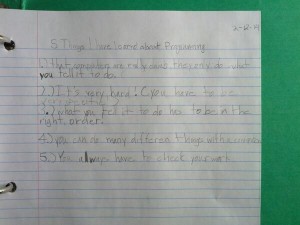 5 Things I have learned about Programming
1.) that computers are really dumb they only do what
you tell it to do.
2.) It's very hard! (you have to be
3.) what you tell it to do has to be in the
right order.
4.) you can do many different things with a
5.) You always have to check your work.